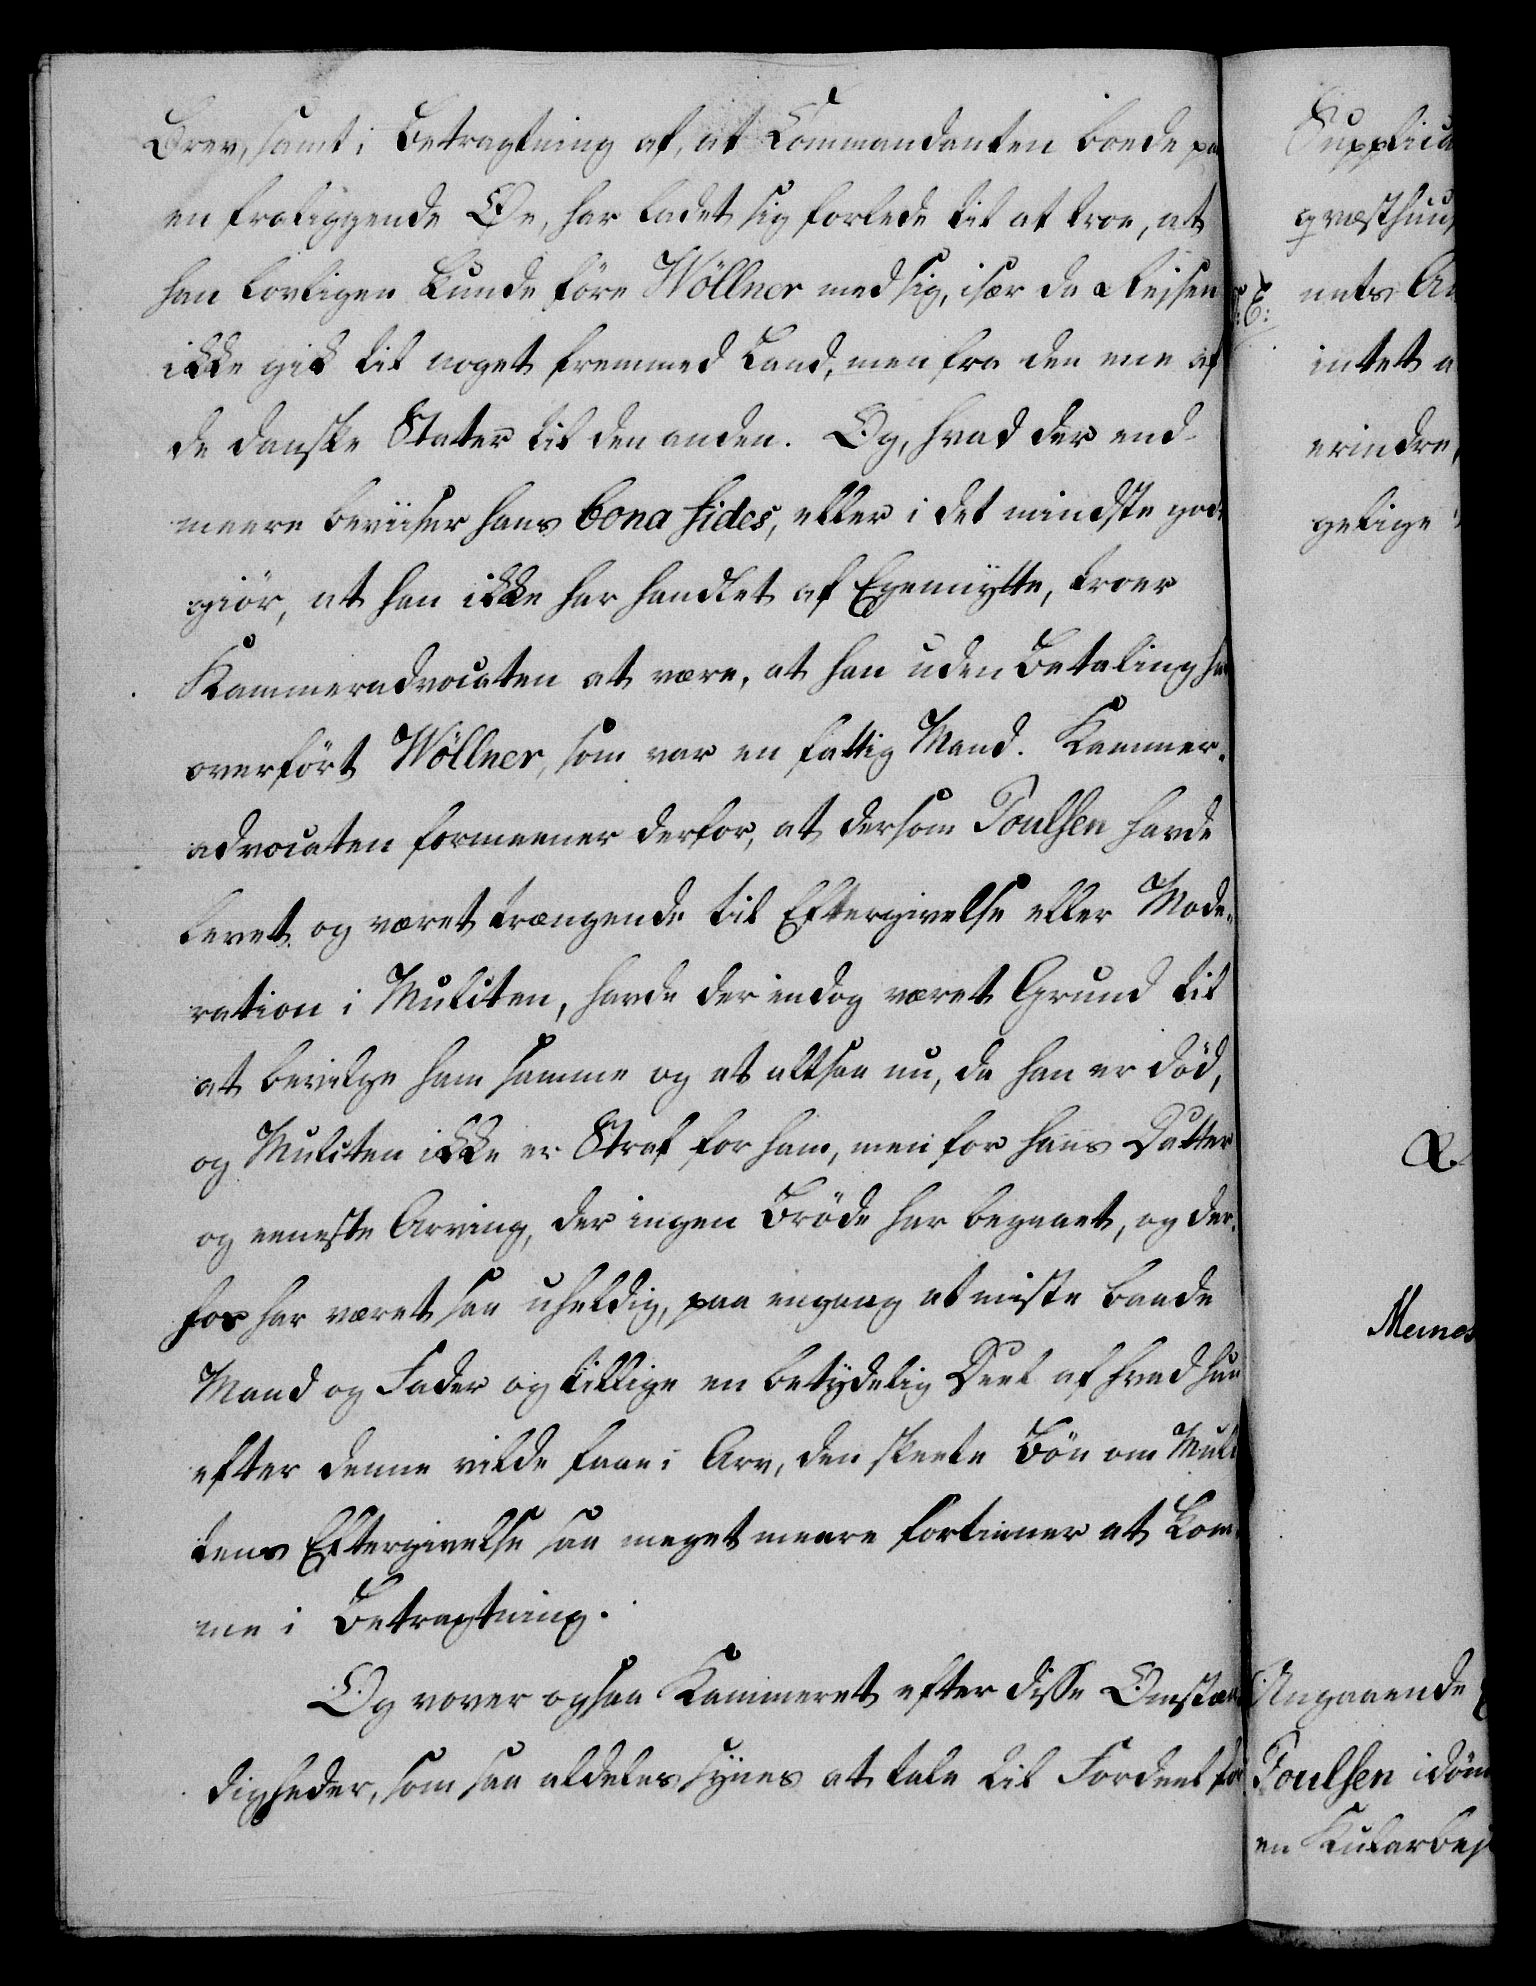 Brev, samt i Betragtning af, at Commandanten boede paa
en fraliggende Øe, har ladet sig forlede til at troe, at
han lovligen kunde føre Wöllner med sig, især da Reisen
ikke gik til noget fremmed Land, men fra den ene af
de danske Stater til den anden. Og, hvad der end-
meere beviiser hans bona fides, eller i det mindste god-
giör, at han ikke har handlet af Egennÿtte, troer
Kammeradvocaten at være, at han uden Betaling har
overfört Wöllner, som var en fattig Mand. Kammer-
advocaten formeener derfor, at dersom Poulsen havde
levet og været trængende til Eftergivelse eller Mode-
ration i Mulcten, havde der endog været Grund til
at bevilge ham samme og at altsaa nu, da han er död,
og Mulcten ikke er Straf for ham, men for hans Datter
og eeneste Arving, der ingen Bröde har begaaet, og der-
hos har været saa uheldig, paa engang at miste baade
Mand og Fader og tillige en betÿdelig Deel af hvad hun
efter denne vilde faae i Arv, den skeete Bön om Mulc-
tens Eftergivelse saa meget meere fortiener at kom-
me i Betragtning.
Og vover ogsaa Kammeret efter disse Omstæn-
digheder, som saa aldeles sÿnes at tale til Fordeel for
Supplica
qvæsthuus
nets An
intet a
erindre,
gelige
R
Memo
Angaaende
Poulsen idöm
en Kularbej